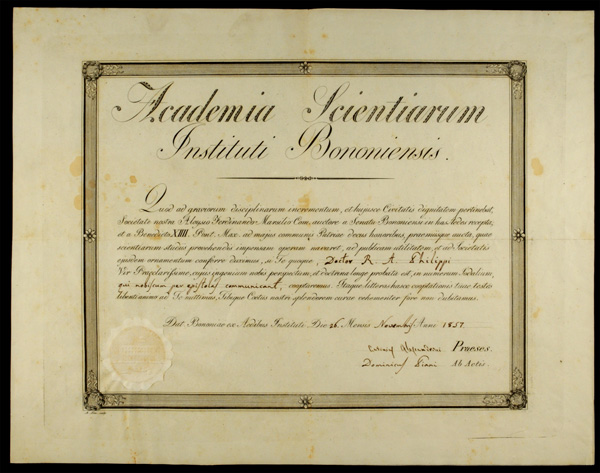 Academia Scientiarum
Instituti Bononiensis.
Quod ad graviorum disciplinarum incrementum, et hujusce Civitatis dignitatem pertinebat,
Societate nostra Aloysio Ferdinando Marsilio Com. auctore a Senatu Bononiensi in has Aedes recepta,
et a Benedicto XIIII Pont. Max. ad majus communis Patriae decus honoribus, praemiisque aucta, quae
scientiarum studiis provehendis impensius operam navaret, ad publicam utilitatem, et ad Societatis
ejusdem ornamentum conferre duximus, ut Te quoque, Doctor R. A. Philippi
Vir Praeclarissime, cujus ingenium nobis perspectum, et doctrina longe probata est, in numerum Sodalium,
qui nobiscum per epistolas communicant, cooptaremus. Itaque litteras hasce cooptationis tuae testes
libentissime ad Te mittimus, Tibique Coetus nostri splendorem curae vehementer fore non dubitamus.
Dat. Bononiae ex Aedibus Instituti Die 26 Mensis Novembris Anno 1857
Praeses.
Dominicus Piani Ab Actis.